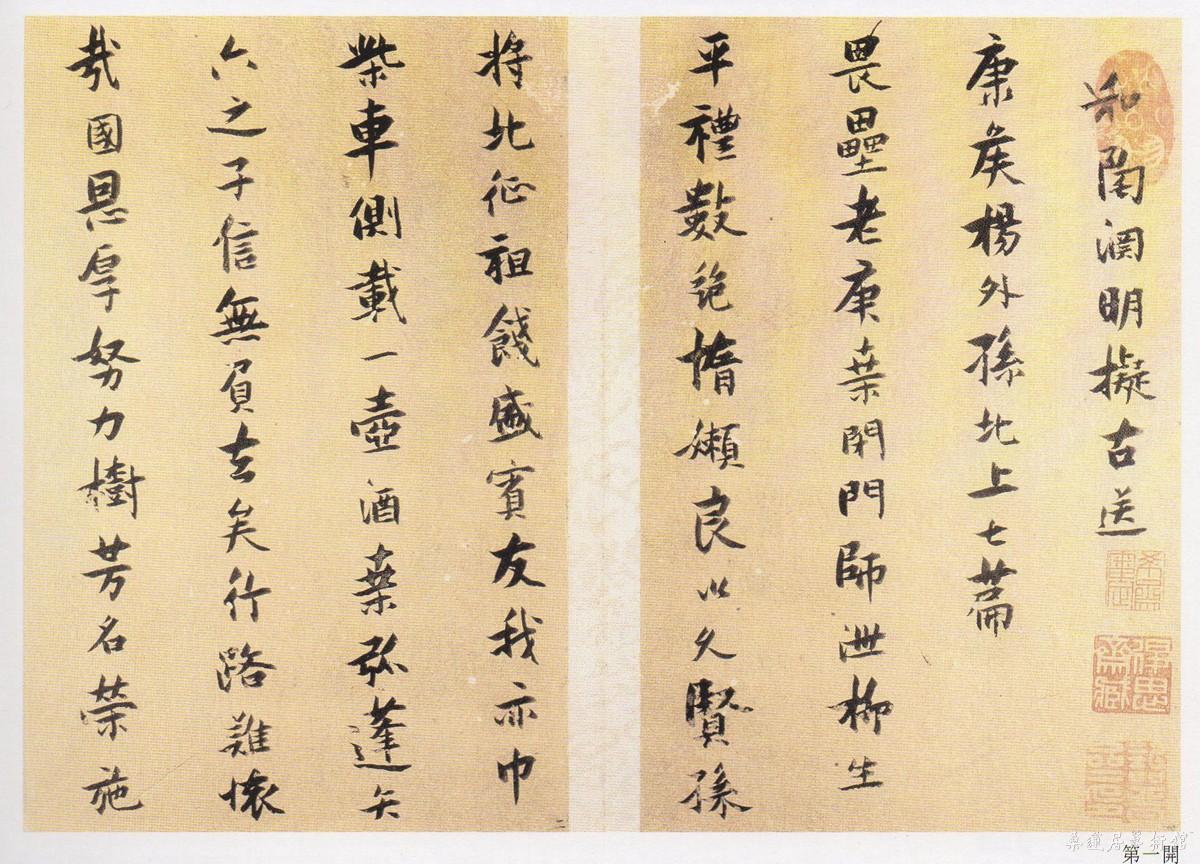 和陶淵明擬古送
康侯楊外孫北上七篇
畏壘老庚桑閉門師泄柳生
平禮數絶惰嬾良以久賢孫
將北征祖餞盛賓友我亦巾
柴車側載一壺酒桑弧蓬矢
六之子信無負去矣行路難懷
哉國恩厚努力樹芳名榮施
桑蓮居藝術館
第一開